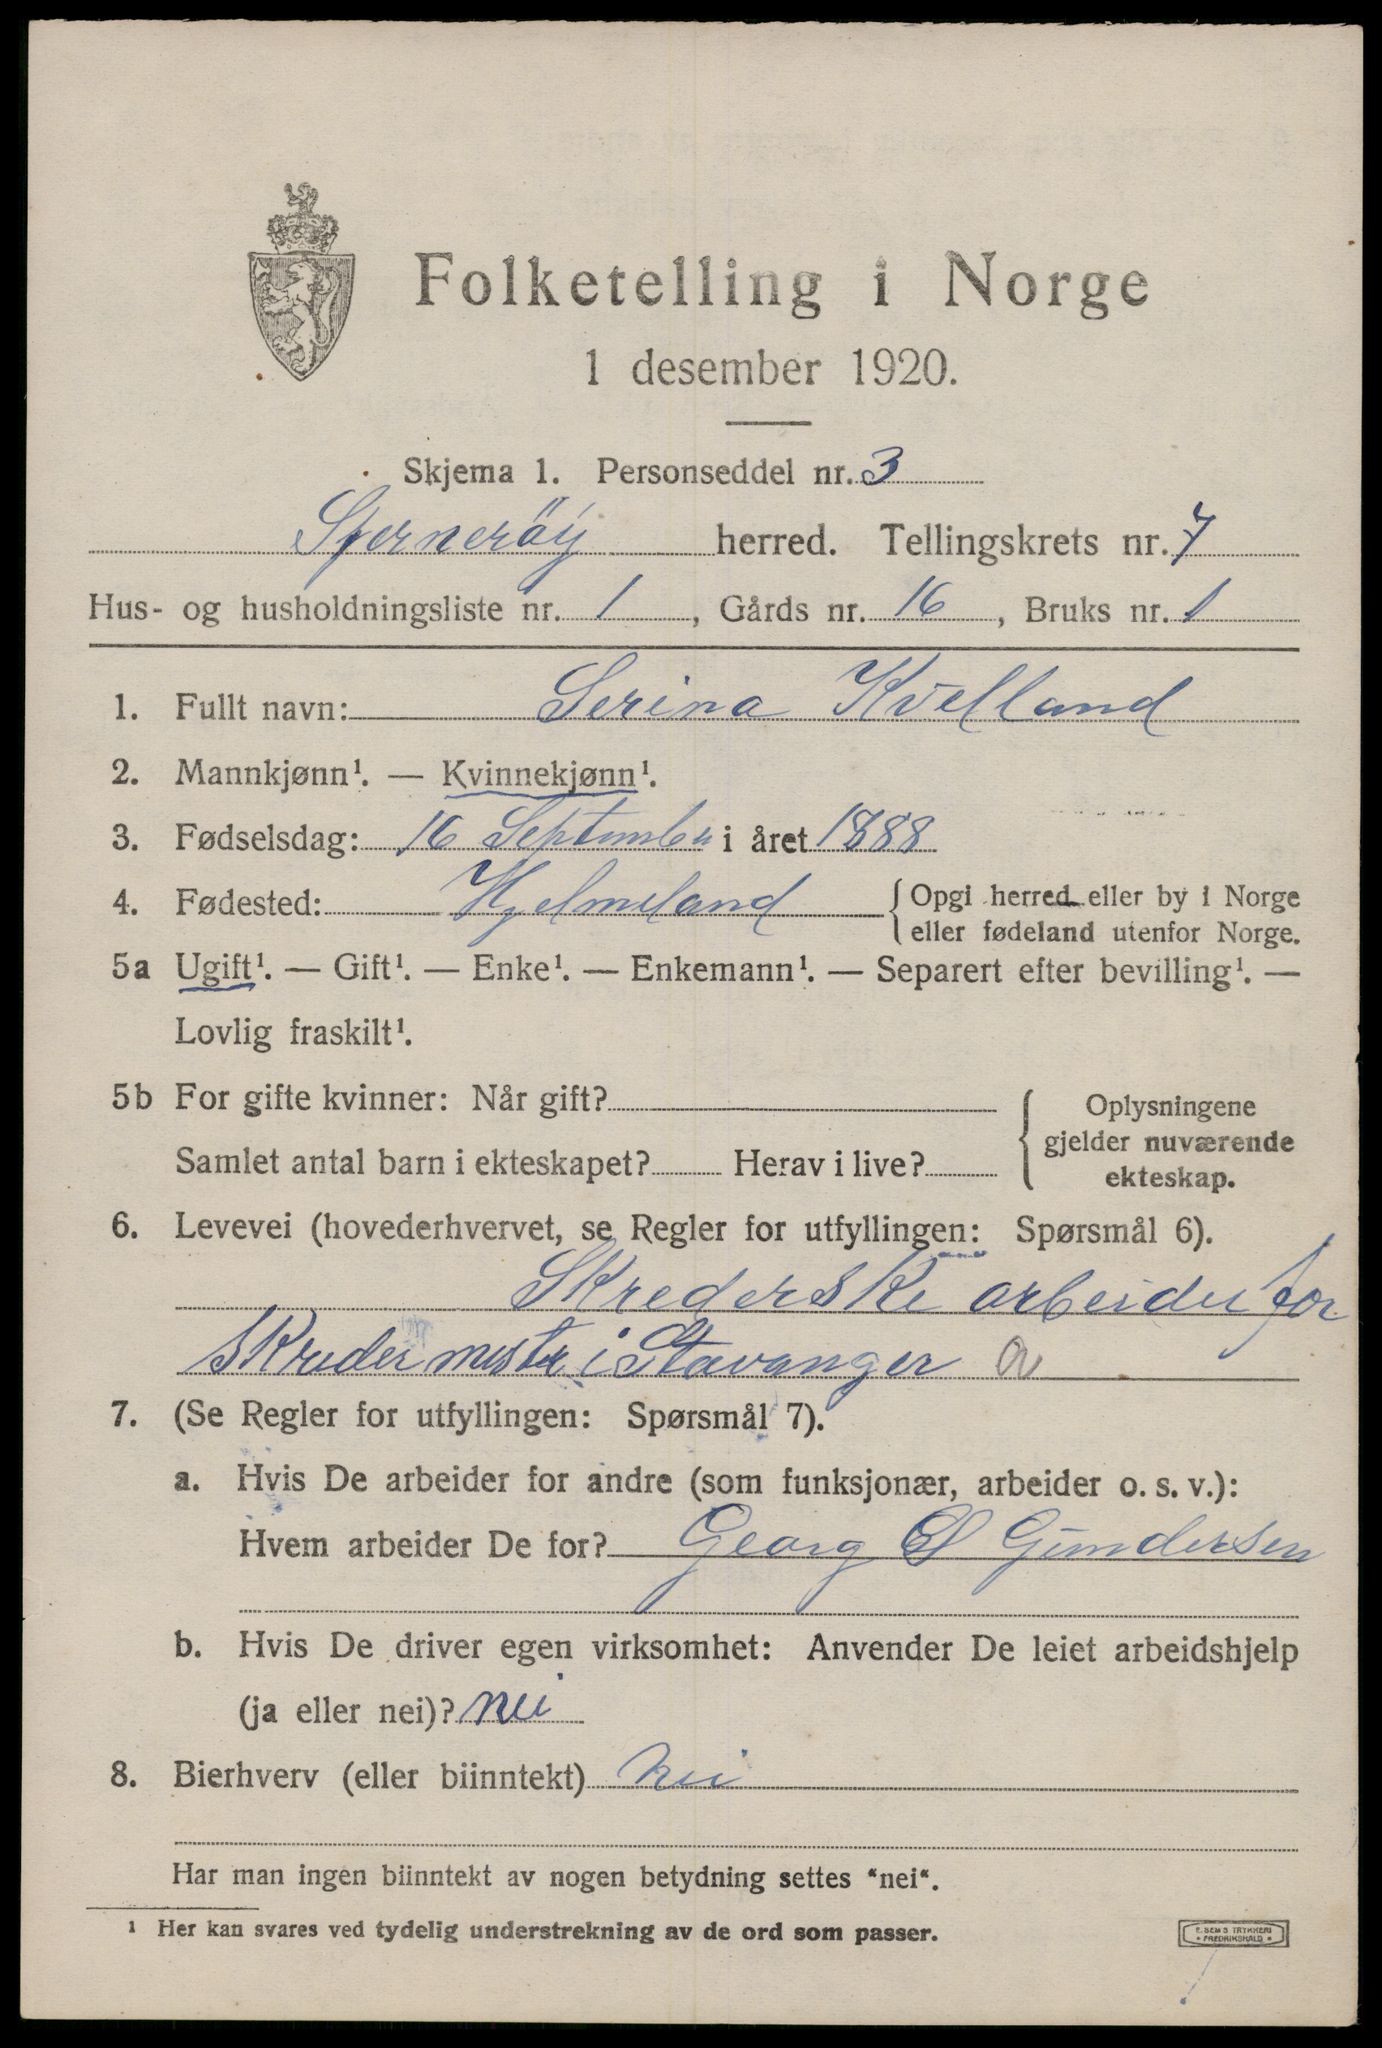 Folketelling i Norge
1 desember 1920.
Skjema 1. Personseddel nr. 3
Sjerneröy herred. Tellingskrets nr. 7
Hus- og husholdningsliste nr. 1, Gårds nr. 16, Bruks nr. 1
1. Fullt navn: Serina Kvelland
2. Mannkjønn¹. — Kvinnekjønn¹.
3. Fødselsdag: 16 September i året 1888
4. Fødested: Hjelmeland { Opgi herred eller by i Norge
eller fødeland utenfor Norge.
5a Ugift¹. — Gift¹. — Enke¹. — Enkemann¹. — Separert efter bevilling¹. —
Lovlig fraskilt¹.
5b For gifte kvinner: Når gift? { Oplysningene
gjelder nuværende
Samlet antal barn i ekteskapet? Herav i live?
ekteskap.
6. Levevei (hovederhvervet, se Regler for utfyllingen: Spørsmål 6).
Skrederske arbeider for
Skreder mester i Stavanger a
7. (Se Regler for utfyllingen: Spørsmål 7).
a. Hvis De arbeider for andre (som funksjonær, arbeider o. s. v.):
Hvem arbeider De for? Georg Gundersen
b. Hvis De driver egen virksomhet: Anvender De leiet arbeidshjelp
(ja eller nei)? nei
8. Bierhverv (eller biinntekt) nei
Har man ingen biinntekt av nogen betydning settes "nei".
¹ Her kan svares ved tydelig understrekning av de ord som passer.
E. SEM'S TRYKKERI
* FREDRIKSHALD *